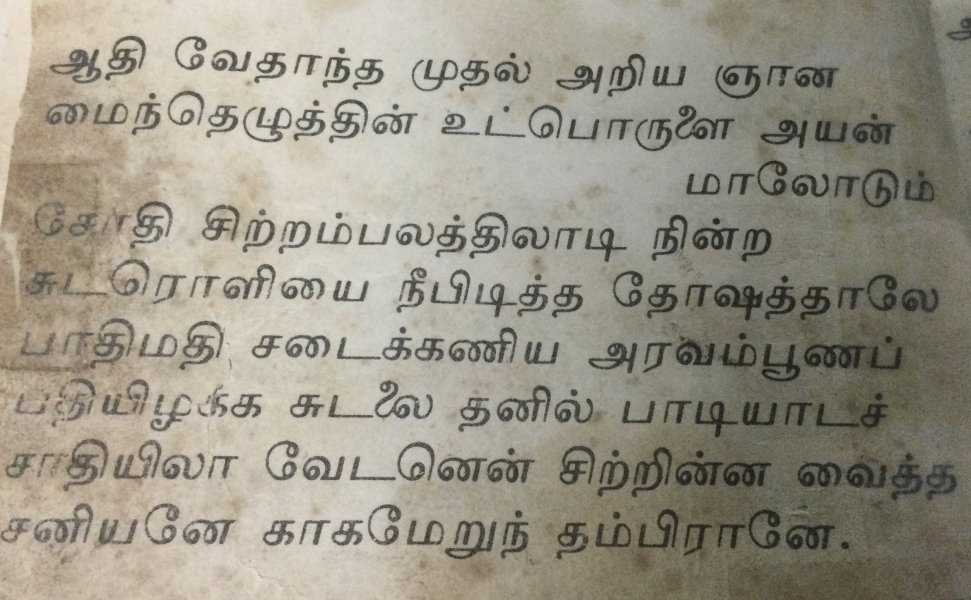 ஆதி வேதாந்த முதல் அறிய ஞான
மைந்தெழுத்தின் உட்பொருளை அயன்
மாலோடும்
சோதி சிற்றம்பலத்திலாடி நின்ற
சுடரொளியை நீபிடித்த தோஷத்தாலே
பாதிமதி சடைக்கணிய அரவம்பூணப்
பதியிழக்க சுடலை தனில் பாடியாடச்
சாதியிலா வேடனென் சிற்றின்ன வைத்த
சனியனே காகமேறுந் தம்பிரானே.